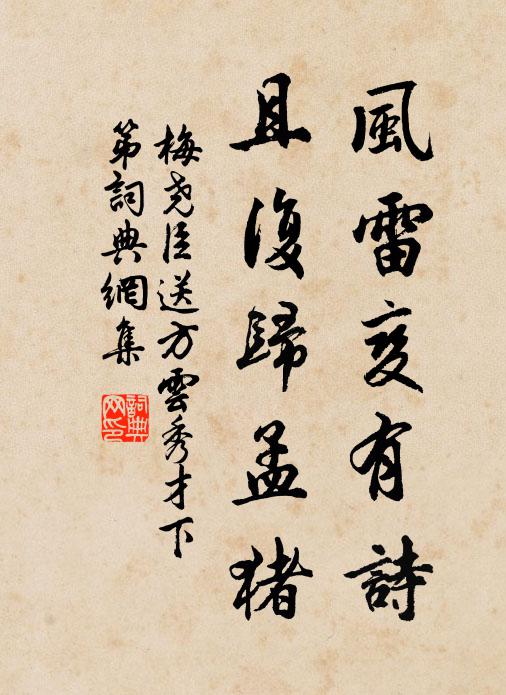 風雷变有詩
且復歸孟猪
梅尧臣送方雲秀才下
第詞典網集
詞典网印